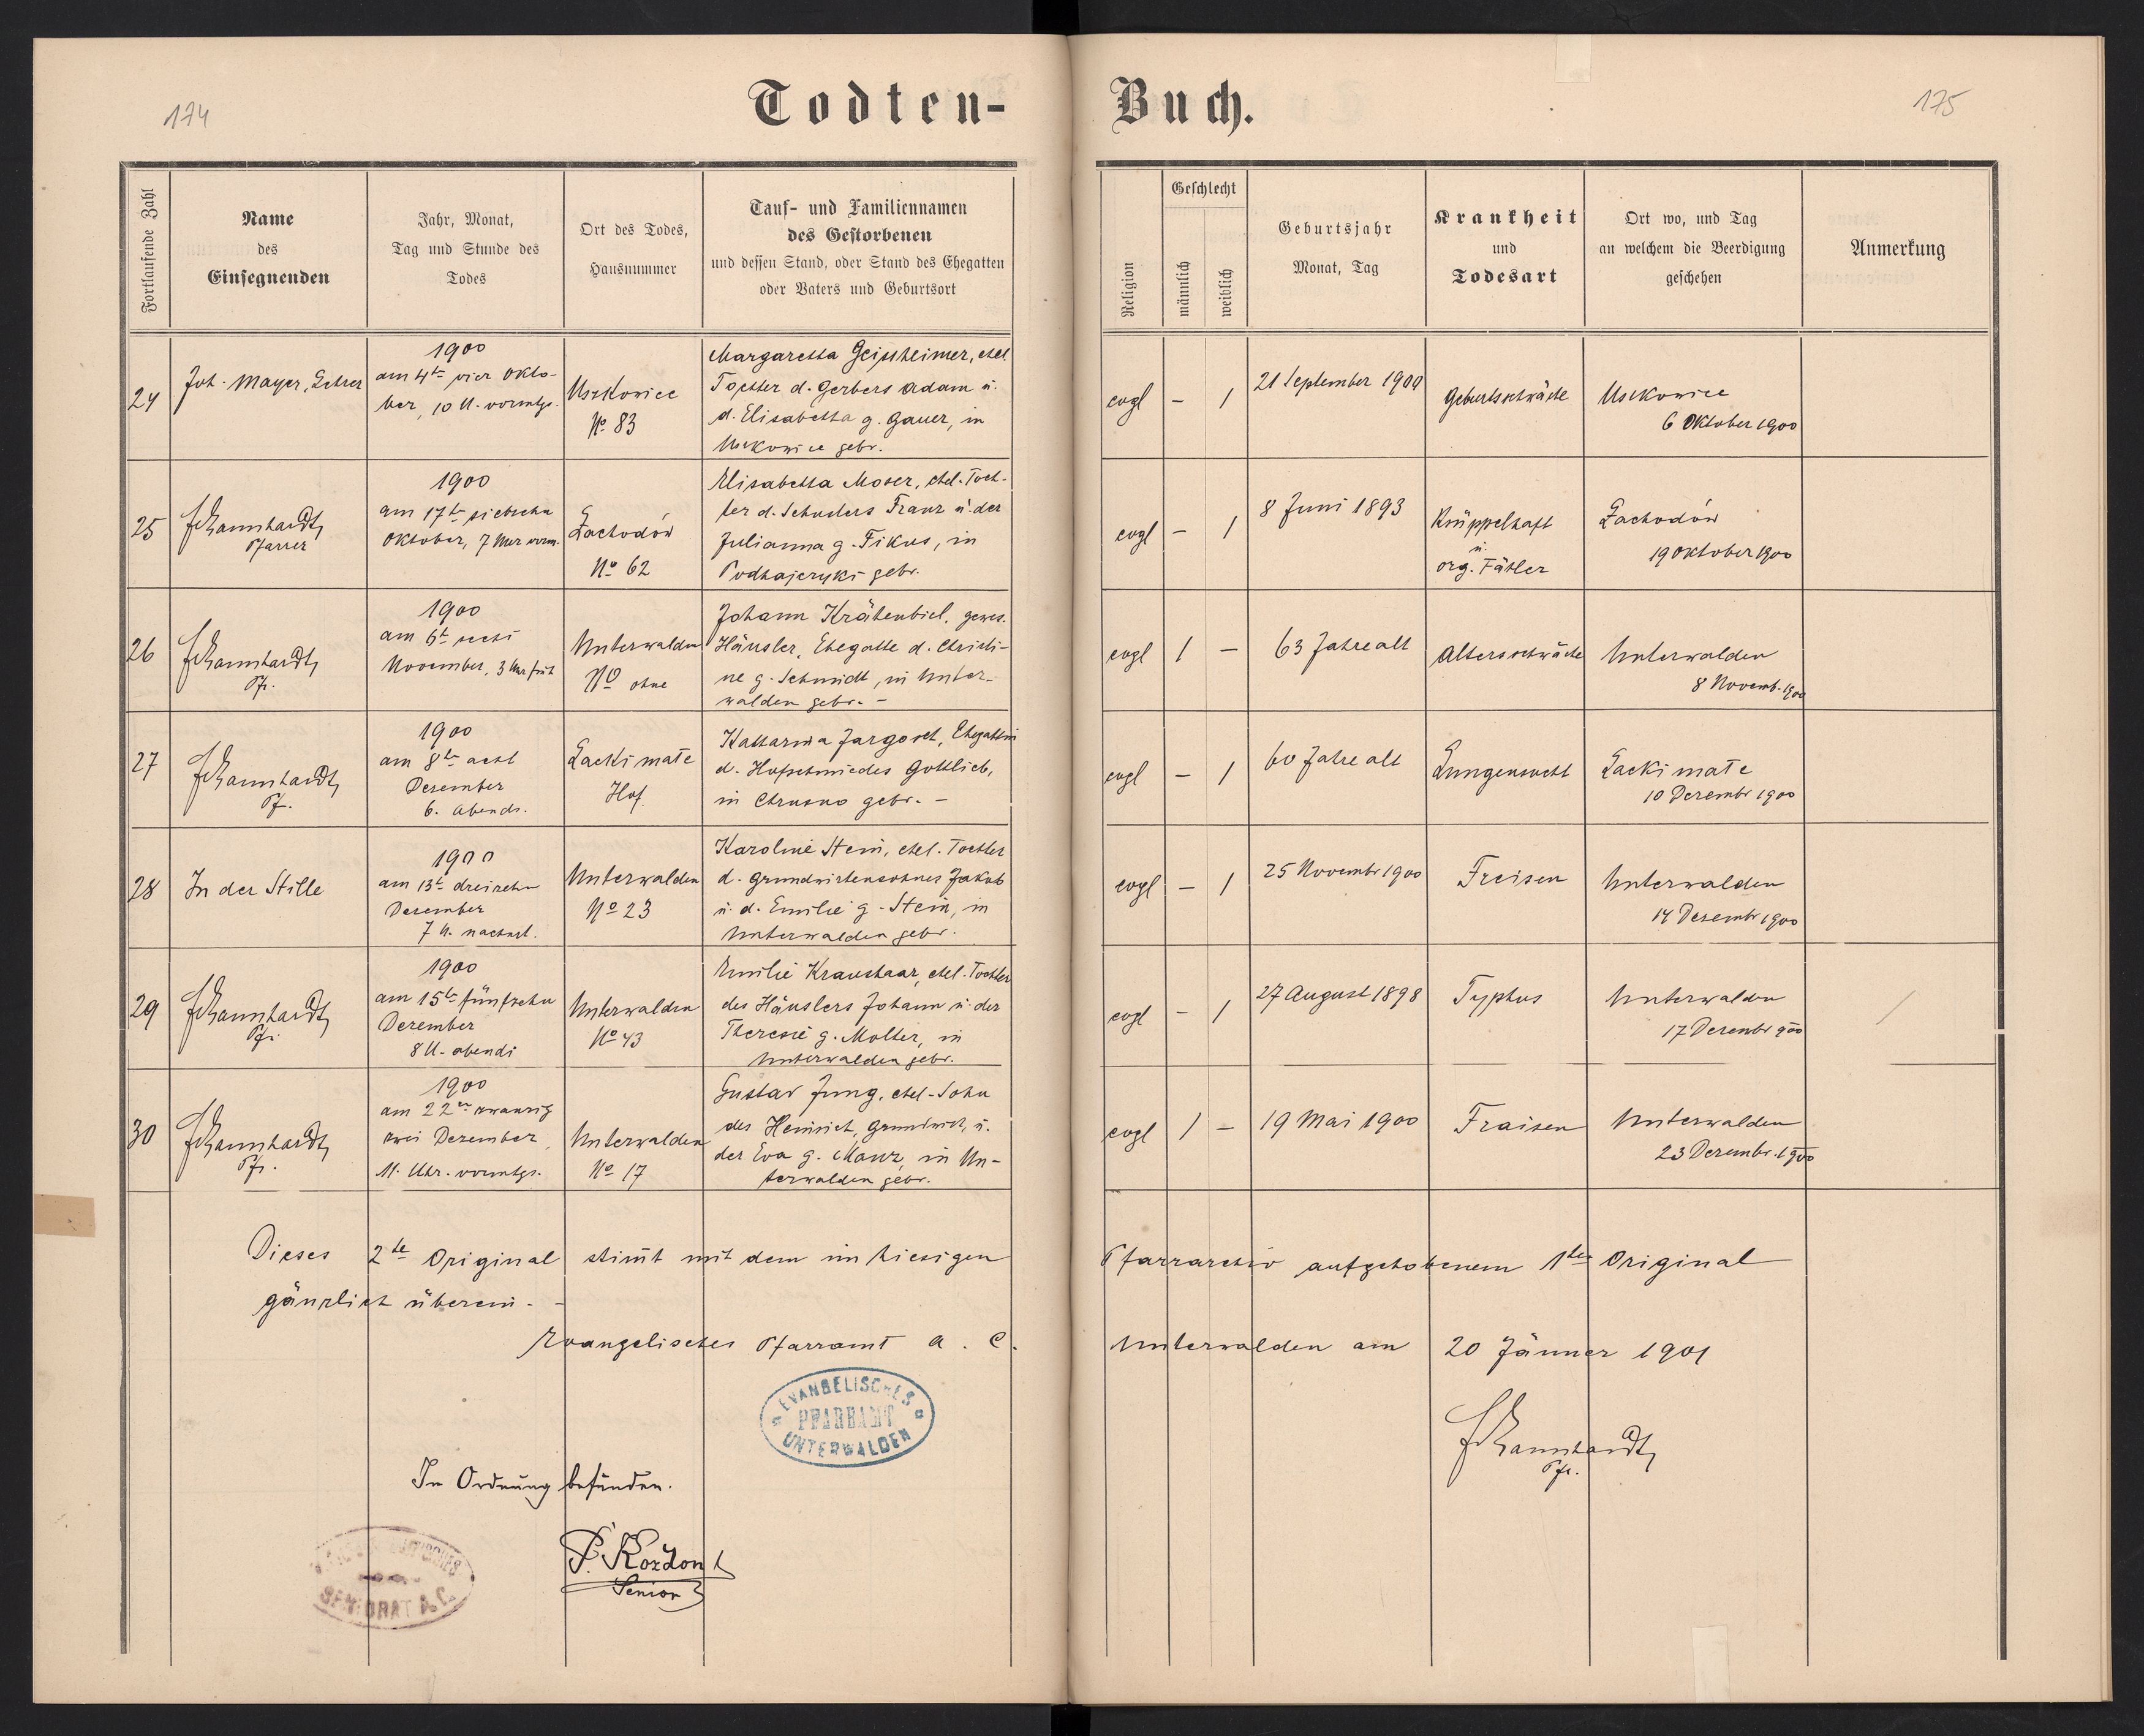 174
Todten-
Buch.
175
Fortlaufende Zahl
Name
des
Einsegnenden
Jahr, Monat,
Tag und Stunde des
Todes
Ort des Todes,
Hausnummer
Tauf- und Familiennamen
des Gestorbenen
und dessen Stand, oder Stand des Ehegatten
oder Vaters und Geburtsort
Religion
Geschlecht
männlich
weiblich
Geburtsjahr
Monat, Tag
Krankheit
und
Todesart
Ort wo, und Tag
an welchem die Beerdigung
geschehen
Anmerkung
24
Joh. Mayer, Lehrer
1900
am 4te vier Okto-
ber, 10 U. vormtgs.
Uszkowice
No 83
Margaretha Geissheimer, ehel.
Tochter d. Gerbers Adam u.
d. Elisabetha g. Gauer, in
Uszkowice gebr.
evgl
-
1
21 September 1900
Geburtsschwäche
Uszkowice
6 Oktober 1900
25
Pfarrer
1900
am 17te siebzehn
Oktober, 7 Uhr vorm.
Zachodów
No 62
Elisabetha Moser, ehel. Toch-
ter d. Schusters Franz u. der
Julianna g. Fikus, in
Podhajczyki gebr.
evgl
-
1
8 Juni 1893
Krüppelhaft
u.
org. Fähler
Zachodów
19 Oktober 1900
26
Pfr.
1900
am 6te sechs
November, 3 Uhr früh
Unterwalden
No ohne
Johann Krähenbiel, gewes.
Häusler, Ehegatte d. Christi-
ne g. Schmidt, in Unter-
walden gebr. -
evgl
1
-
63 Jahre alt
Altersschwäche
Unterwalden
8 Novemb. 1900
27
Pf.
1900
am 8te acht
Dezember
6. abends.
Lacki małe
Hof.
Katharina Jargosch, Ehegattin
d. Hofschmiedes Gottlieb,
in Chrusno gebr. -
evgl
-
1
60 Jahre alt
Lungensucht
Lacki małe
10 Dezembr 1900
28
In der Stille
1900
am 13te dreizehn
Dezember
7 U. nachmt.
Unterwalden
No 23
Karoline Stein, ehel. Tochter
d. Grundwirtensohnes Jakob
u. d. Emilie g. Stein, in
Unterwalden gebr.
evgl
-
1
25 Novembr 1900
Freisen
Unterwalden
14 Dezembr 1900
29
Pfr.
1900
am 15te fünfzehn
Dezember
8 U. abends
Unterwalden
No 43
Emilie Kraushaar, ehel. Tochter
des Häuslers Johann u. der
Theresie g. Molter, in
Unterwalden gebr.
evgl
-
1
27 August 1898
Typhus
Unterwalden
17 Dezembr 900
30
Pfr.
1900
am 22en zwanzig
zwei Dezember,
11. Uhr. vormtgs.
Unterwalden
No 17
Gustav Jung, ehel. Sohn
des Heinrich, Grundwirth, u.
der Eva g. Manz, in Un-
terwalden gebr.
evgl
1
-
19 Mai 1900
Fraisen
Unterwalden
23 Dezembr. 1900
Dieses 2te Original stimt mit dem im hiesigen Pfarrarchiv aufgehobenem 1ten Original
gänzlich überein. -
Evangelisches Pfarramt A. C. Unterwalden am 20 Jänner 1901
EVANGELISCHES
PFARRAMT
UNTERWALDEN
Pfr.
In Ordnung befunden.
Senior
SENIORAT A.C.